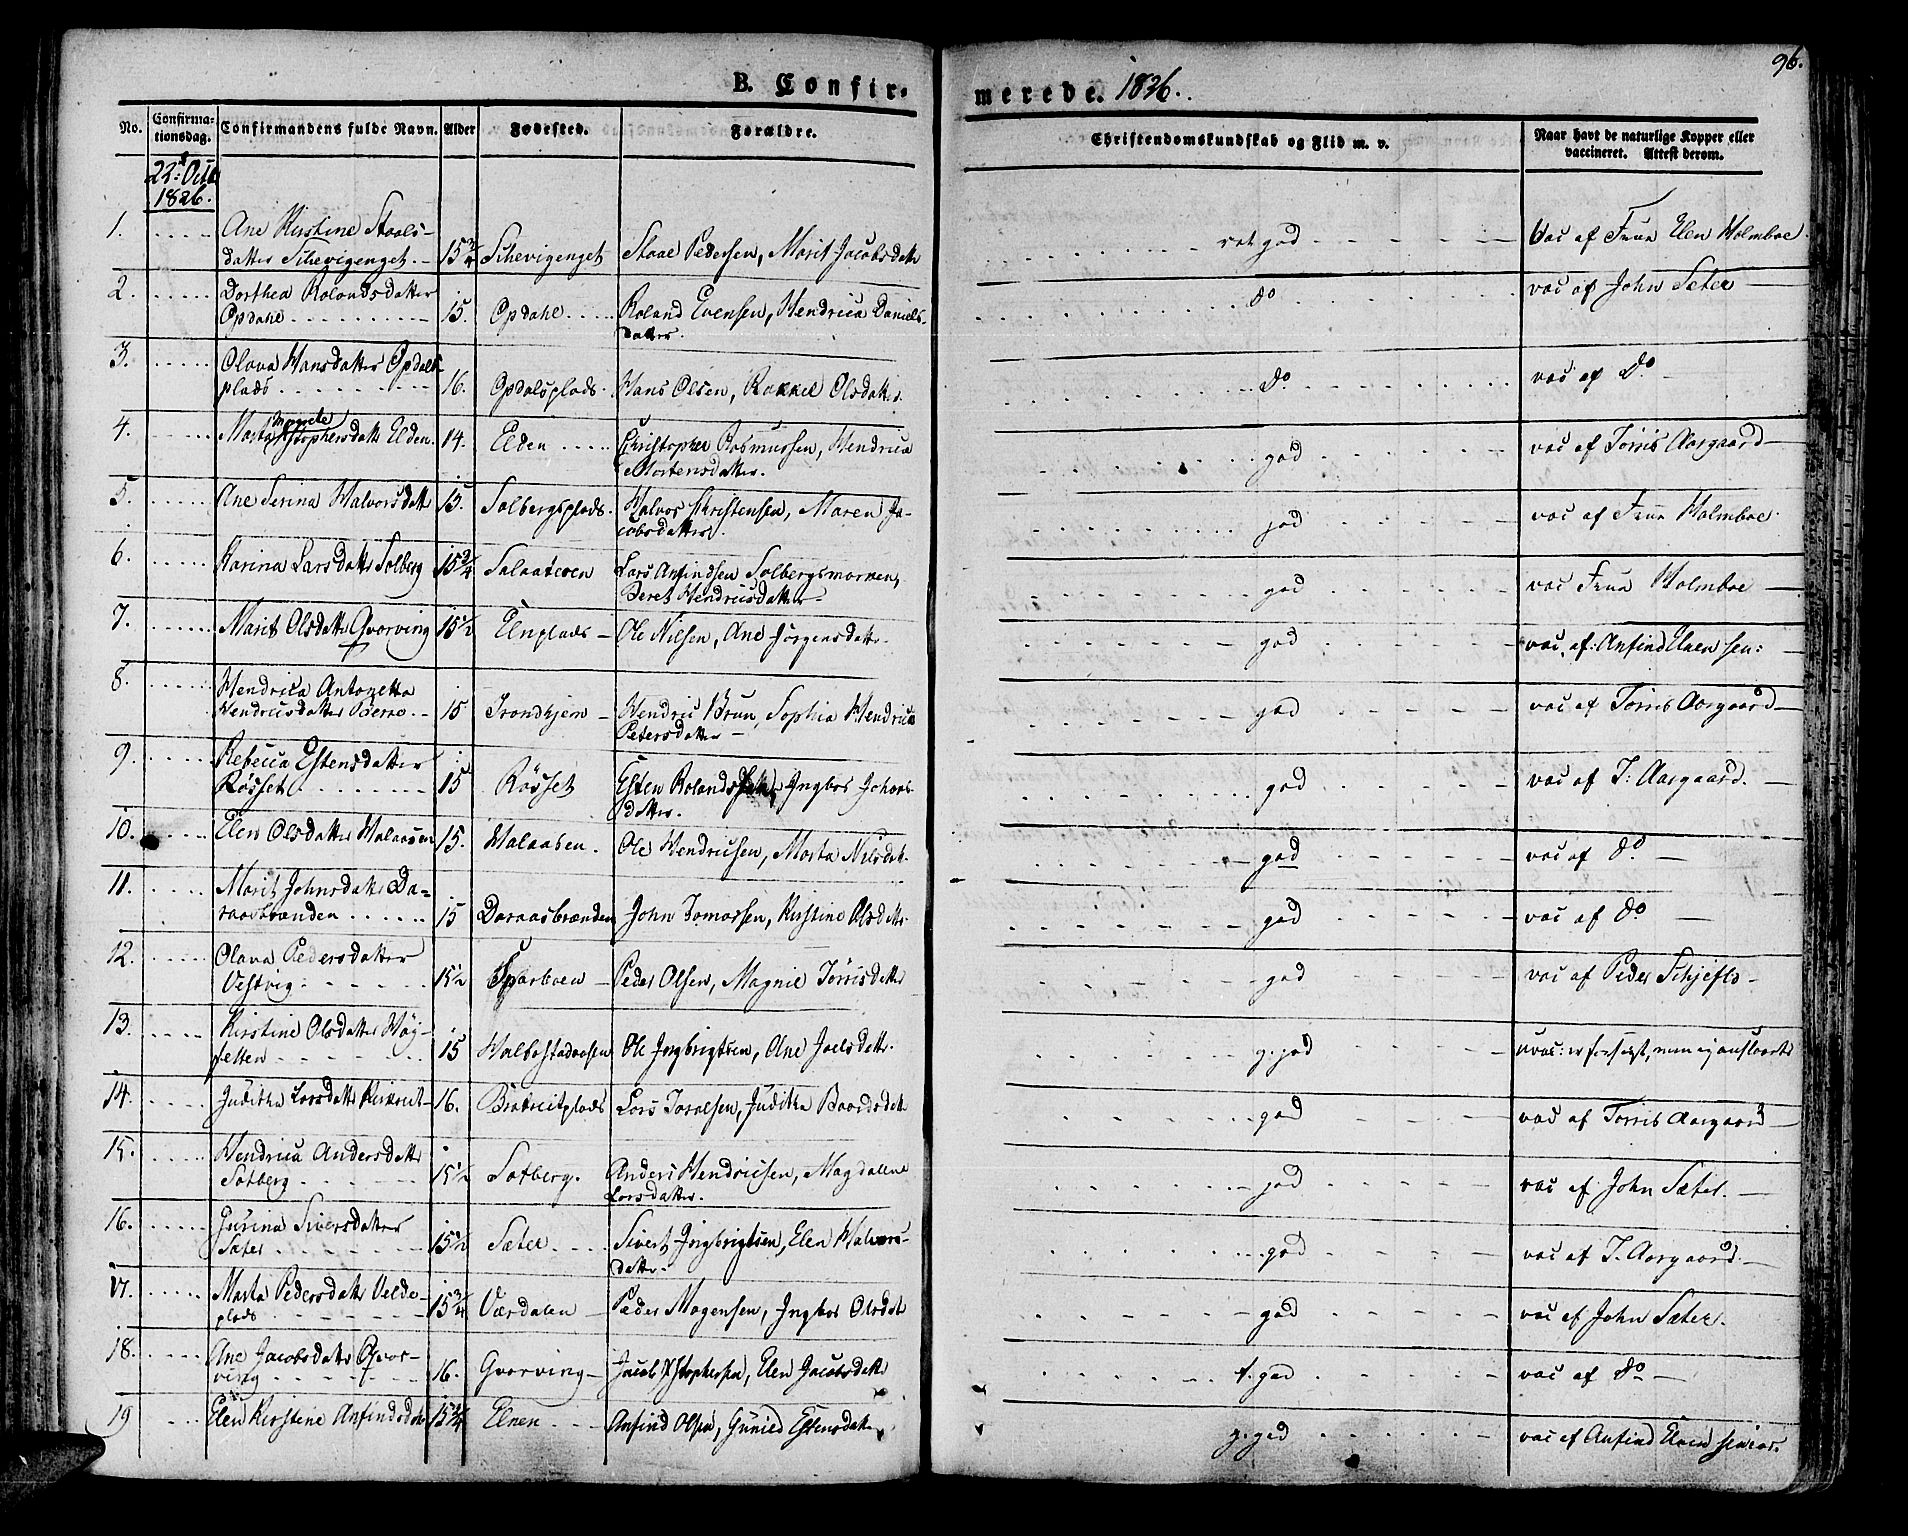 96.
B. Confirmerede. 1826.
No. Confirmationsdag. Confirmandens fulde Navn. Alder Fødested. Forældre. Christendomskundskab og Flid m. v. Naar havt de naturlige Kopper eller vaccineret. Attest derom.
22: Octb
1826.
1. Ane Kirstine Staals-
datter Schevigenget. 15 3/4 Schevigenget Staal Pedersen, Marit Jacobsdatt god vac af Frue Elen Holmboe.
2. Dorthea Rolandsdatter
Opdahl 15. Opdahl Roland Evensen, Hendrica Daniels-
datter. do vac af John Sæter
3. Olava Hansdatter Opdals-
plads 16. Opdalsplads. Hans Olsen, Rakkel Olsdatter do vac af Do
4. Marta Magrete
Xstophersdatt Elden. 14. Elden Christopher Rasmussen, Hendrica
Mortensdatter. god vac af Torris Aargaard
5. Ane Serina Halvorsdatt 15. Solbergsplads. Halvor Christensen, Maren Ja-
cobsdatter. god vac af Frue Holmboe.
6. Karina Larsdatt Solberg 15 3/4 Lars Anfindsen Solbergsmarken,
Beret Hendricsdatter god vac Frue Holmboe
7. Marit Olsdatt Qvorving 15 1/2 Elnplads Ole Nilsen, Ane Jørgensdatt. god vac. af: Anfind Elnen sen:
8. Hendrica Antonetta
Hendricsdatter 15 Trondhjem Hendric Brun, Sophia Hendrica
Petersdatter god vac af Torris Aargaard
9. Rebecca Estensdatter
Røsset 15 Røsset Esten Rolandsen Ingbor Johans
datter. god vac af T: Aargaard.
10. Elen Olsdatter Halaasen 15. Halaasen. Ole Hendricsen, Marta Nilsdt. god vac af do.
11. Marit Johnsdatt Da-
raasbrænden 15 Daraasbrænden John Tomassen, Kirstine Olsdatt. god vac af do
12. Olava Pedersdatter
Vestvig 15 1/2 Sparboen Peder Olsen, Magnil Torrisdatter god vac af Peder Schjeflo
13. Kirstine Olsdatter Høy-
petten 15 Halbostadaasen Ole Ingbrigtsen, Ane Joelsdatt. g. god
14. Juditha Larsdatt 16. Lars Toralsen, Juditha Baardsdt god vac af Torris Aargaard
15. Hendrica Andersdatt
Solberg 15 1/2 Solberg. Anders Hendricsen, Magdalene
Larsdatter. god vac af John Sæter.
16. Gurina Siversdatter
Sæter 15 1/2 Sæter Sivert Ingbrigtsen, Elen Halvors-
datter. god vac af T. Aargaard.
17. Marta Pedersdatt Velde-
plads 15 3/4 Værdalen Peder Mogensen, Ingbor Olsdat god vac af John Sæter.
18. Ane Jacobsdatt Qvor-
ving 16. Qvorving Jacob Xstophersen, Elen Jacobsdatt t. god vac af do
19 Elen Kirstine Anfindsdat 15 3/4 Elnen Anfind Olsen, Guruid Estensdatt g. god vac af Anfind Elnen senior.